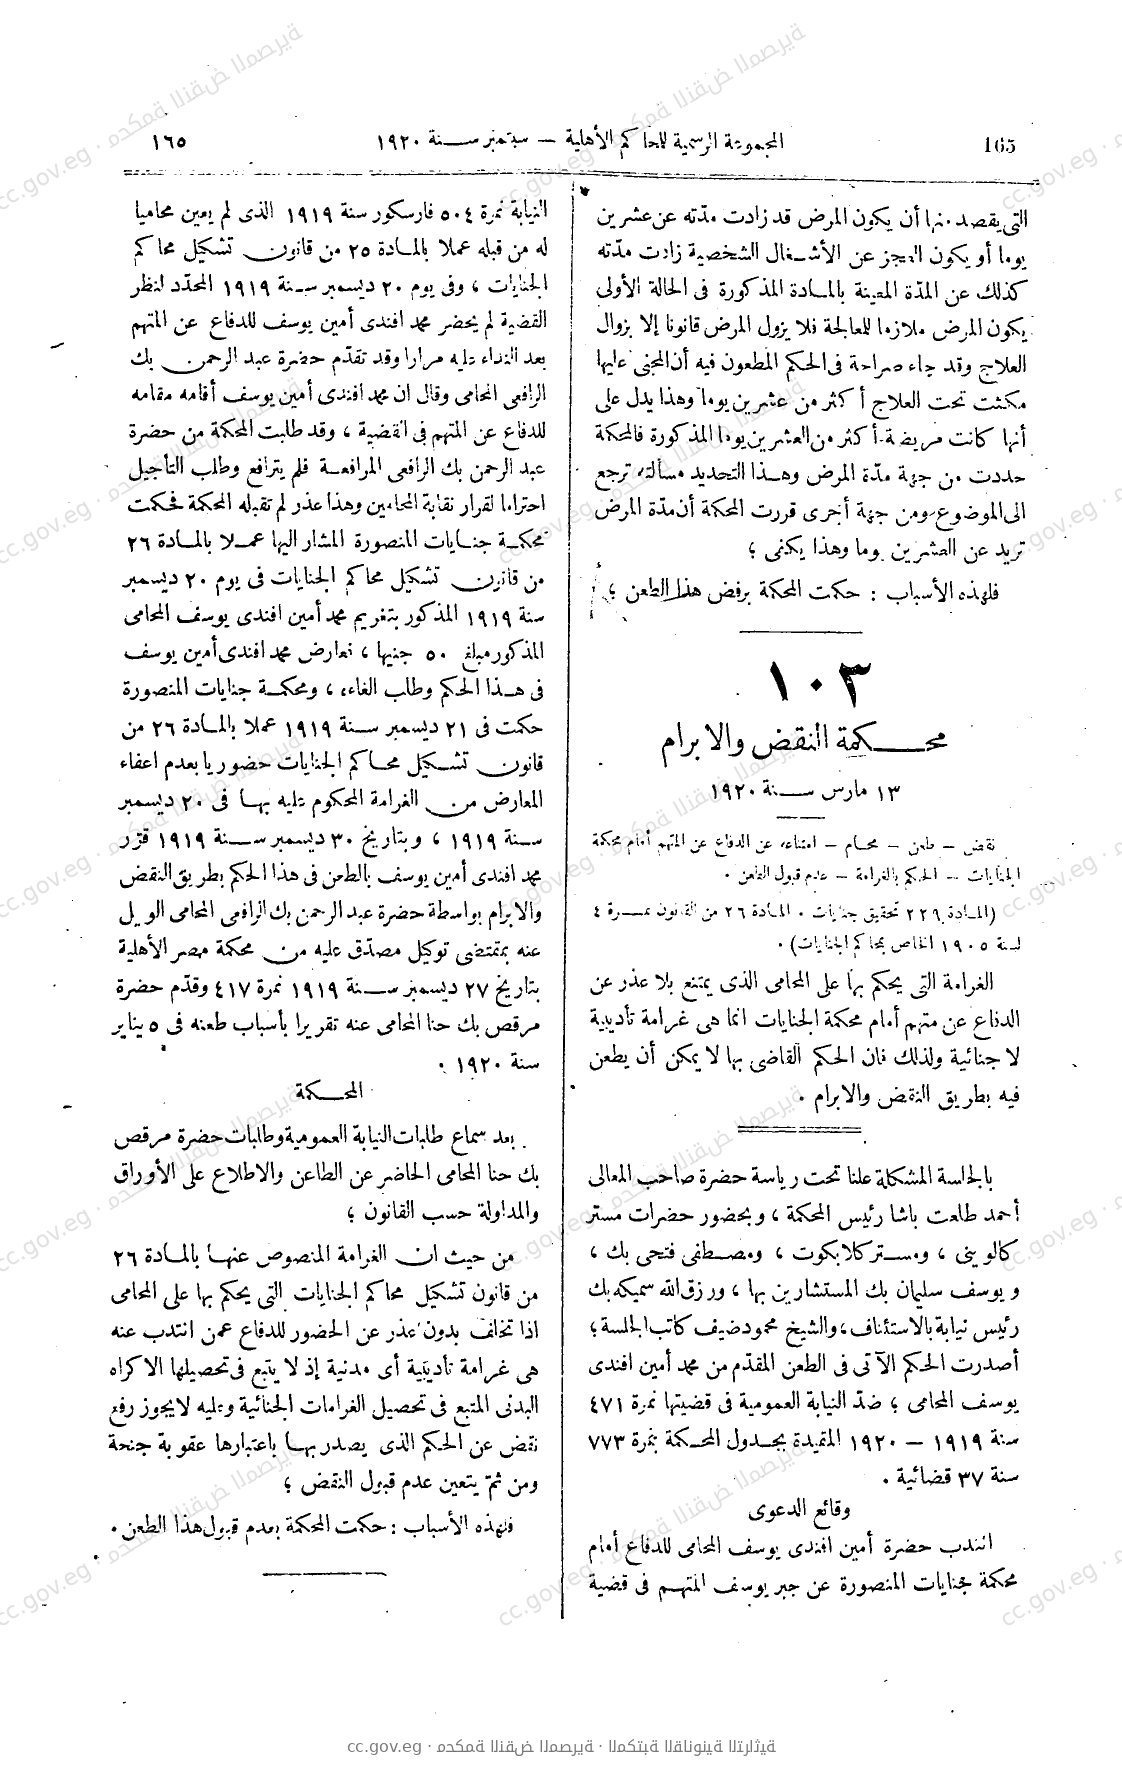 165 المجموعة الرسمية للمحاكم الأهلية — سبتمبر سنة ١٩٢٠ ١٦٥
التى يقصد منها أن يكون المرض قد زادت مدّته عن عشرين
يوما أو يكون العجز عن الأشغال الشخصية زادت مدّته
كذلك عن المدّة المعينة بالمادة المذكورة فى الحالة الأولى
يكون المرض ملازما للمعالجة فلا يزول المرض قانونا إلا بزوال
العلاج وقد جاء صراحة فى الحكم المطعون فيه أن المجنى عليها
مكثت تحت العلاج أكثر من عشرين يوما وهذا يدل على
أنها كانت مريضة أكثر من العشرين يوما المذكورة فالمحكمة
حددت من جهة مدّة المرض وهذا التحديد مسألة ترجع
الى الموضوع ومن جهة أخرى قررت المحكمة أن مدّة المرض
تزيد عن العشرين يوما وهذا يكفى ؛
فلهذه الأسباب : حكمت المحكمة برفض هذا الطعن ؛
١٠٣
محكمة النقض والابرام
١٣ مارس سنة ١٩٢٠
نقض — طعن — محام — امتناعه عن الدفاع عن المتهم أمام محكمة
الجنايات — الحكم بالغرامة — عدم قبول الطعن ٠
(المادة ٢٢٩ تحقيق جنايات ٠ المادة ٢٦ من القانون نمرة ٤
لسنة ١٩٠٥ الخاص بمحاكم الجنايات) ٠
الغرامة التى يحكم بها على المحامى الذى يمتنع بلا عذر عن
الدفاع عن متهم أمام محكمة الجنايات انما هى غرامة تأديبية
لا جنائية ولذلك فان الحكم القاضى بها لا يمكن أن يطعن
فيه بطريق النقض والابرام ٠
بالجلسة المشكلة علنا تحت رياسة حضرة صاحب المعالى
أحمد طلعت باشا رئيس المحكمة ، وبحضور حضرات مستر
كالوينى ، ومستر كلايكوت ، ومصطفى فتحى بك ،
ويوسف سليمان بك المستشارين بها ، ورزق الله سميكه بك
رئيس نيابة بالاستئناف ، والشيخ محمود ضيف كاتب الجلسة ؛
أصدرت الحكم الآتى فى الطعن المقدّم من محمد أمين افندى
يوسف المحامى ؛ ضدّ النيابة العمومية فى قضيتها نمرة ٤٧١
سنة ١٩١٩ — ١٩٢٠ المقيدة بجدول المحكمة بنمرة ٧٧٣
سنة ٣٧ قضائية ٠
وقائع الدعوى
انتدب حضرة أمين افندى يوسف المحامى للدفاع أمام
محكمة جنايات المنصورة عن جبر يوسف المتهم فى قضية
النيابة نمرة ٥٠٤ فارسكور سنة ١٩١٩ الذى لم يعين محاميا
له من قبله عملا بالمادة ٢٥ من قانون تشكيل محاكم
الجنايات ، وفى يوم ٢٠ ديسمبر سنة ١٩١٩ المحدّد لنظر
القضية لم يحضر محمد افندى أمين يوسف للدفاع عن المتهم
بعد النداء عليه مرارا وقد تقدّم حضرة عبد الرحمن بك
الرافعى المحامى وقال ان محمد افندى أمين يوسف أقامه مقامه
للدفاع عن المتهم فى القضية ، وقد طلبت المحكمة من حضرة
عبد الرحمن بك الرافعى المرافعة فلم يترافع وطلب التأجيل
احتراما لقرار نقابة المحامين وهذا عذر لم تقبله المحكمة فحكمت
محكمة جنايات المنصورة المشار اليها عملا بالمادة ٢٦
من قانون تشكيل محاكم الجنايات فى يوم ٢٠ ديسمبر
سنة ١٩١٩ المذكور بتغريم محمد أمين افندى يوسف المحامى
المذكور مبلغ ٥٠ جنيها ، فعارض محمد افندى أمين يوسف
فى هذا الحكم وطلب الغاءه ، ومحكمة جنايات المنصورة
حكمت فى ٢١ ديسمبر سنة ١٩١٩ عملا بالمادة ٢٦ من
قانون تشكيل محاكم الجنايات حضوريا بعدم اعفاء
المعارض من الغرامة المحكوم عليه بها فى ٢٠ ديسمبر
سنة ١٩١٩ ، وبتاريخ ٣٠ ديسمبر سنة ١٩١٩ قرّر
محمد افندى أمين يوسف بالطعن فى هذا الحكم بطريق النقض
والابرام بواسطة حضرة عبد الرحمن بك الرافعى المحامى الوكيل
عنه بمقتضى توكيل مصدّق عليه من محكمة مصر الأهلية
بتاريخ ٢٧ ديسمبر سنة ١٩١٩ نمرة ٤١٧ وقدّم حضرة
مرقص بك حنا المحامى عنه تقريرا بأسباب طعنه فى ٥ يناير
سنة ١٩٢٠ ٠
المحكمة
بعد سماع طلبات النيابة العمومية وطلبات حضرة مرقص
بك حنا المحامى الحاضر عن الطاعن والاطلاع على الأوراق
والمداولة حسب القانون ؛
من حيث ان الغرامة المنصوص عنها بالمادة ٢٦
من قانون تشكيل محاكم الجنايات التى يحكم بها على المحامى
اذا تخلف بدون عذر عن الحضور للدفاع عمن انتدب عنه
هى غرامة تأديبية أى مدنية إذ لا يتبع فى تحصيلها الاكراه
البدنى المتبع فى تحصيل الغرامات الجنائية وعليه لا يجوز رفع
نقض عن الحكم الذى يصدر بها باعتبارها عقوبة جنحة
ومن ثمّ يتعين عدم قبول النقض ؛
فلهذه الأسباب : حكمت المحكمة بعدم قبول هذا الطعن ٠
cc.gov.eg · محكمة النقض المصرية · المكتبة القانونية التراثية